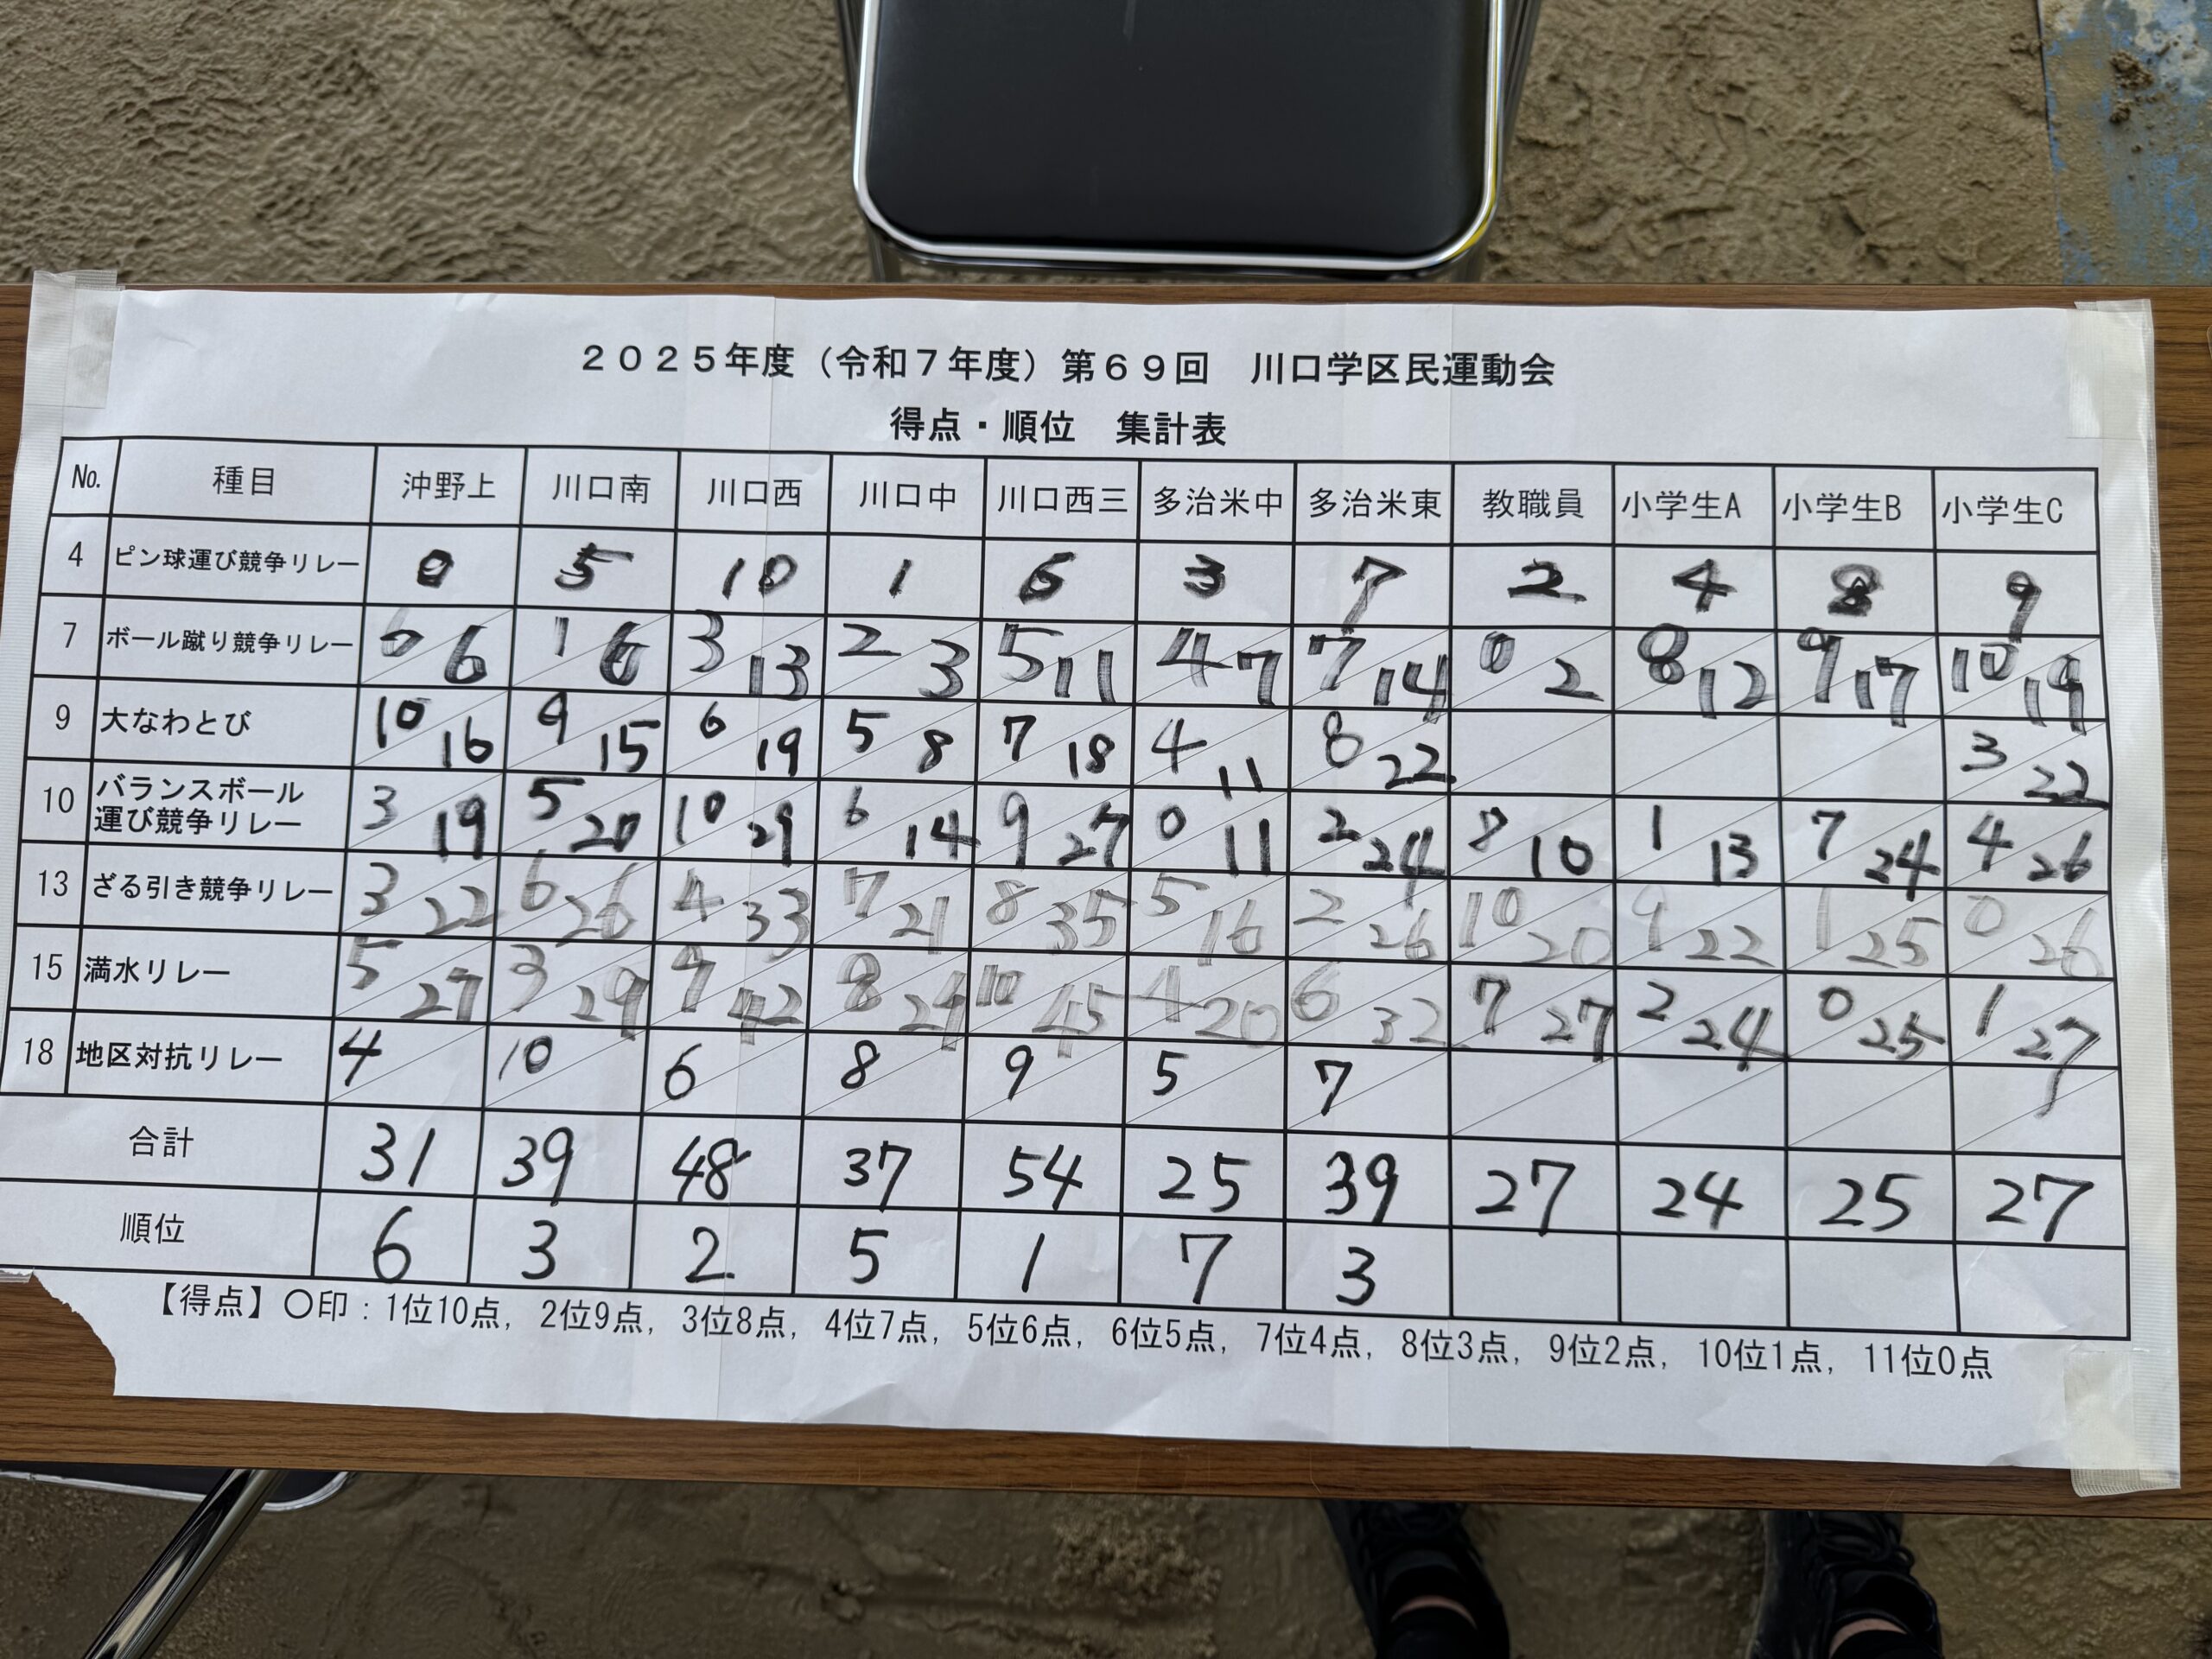 2025年度（令和7年度）第69回　川口学区民運動会
得点・順位　集計表
No. 種目 沖野上 川口南 川口西 川口中 川口西三 多治米中 多治米東 教職員 小学生A 小学生B 小学生C
4 ピン球運び競争リレー 0 5 10 1 6 3 7 2 4 8 9
7 ボール蹴り競争リレー 6 6 1 6 3 13 2 3 5 11 4 7 7 14 0 2 8 12 9 17 10 19
9 大なわとび 10 16 9 15 6 19 5 8 7 18 4 11 8 22 3 22
10 バランスボール運び競争リレー 3 19 5 20 10 29 6 14 9 27 0 11 2 24 8 10 1 13 7 24 4 26
13 ざる引き競争リレー 3 22 6 26 4 33 7 21 8 35 5 16 2 26 10 20 9 22 1 25 0 26
15 満水リレー 5 27 3 29 9 42 8 29 10 45 4 20 6 32 7 27 2 24 0 25 1 27
18 地区対抗リレー 4 10 6 8 9 5 7
合計 31 39 48 37 54 25 39 27 24 25 27
順位 6 3 2 5 1 7 3
【得点】〇印：1位10点，2位9点，3位8点，4位7点，5位6点，6位5点，7位4点，8位3点，9位2点，10位1点，11位0点